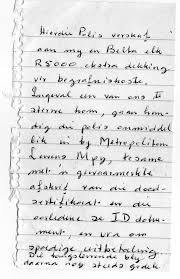 Hierdie Polis verskaf
aan my en Betta elk
R5000 ekstra dekking
vir begrafniskoste.
Ingeval een van ons te
sterwe kom, gaan han-
dig die polis onmiddel
lik in by Metropolitan
Lewens Mpy, tesame
met 'n gewaarmerkte
afskrif van die dood-
sertifikaat en die
oorledene se ID doku-
ment en vra om
spoedige uitbetaling
Die langslewende bly
daarna nog steeds gedek